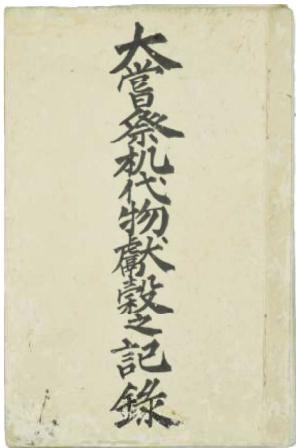 大嘗祭机代物献穀之記録